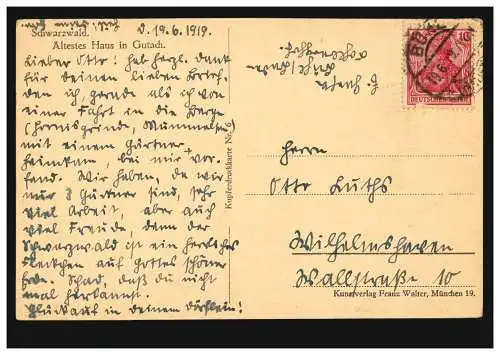 Schwarzwald.
Ältestes Haus in Gutach.
d. 19.6.1919.
Lieber Otto! Hab herzl. Dank
für deinen lieben Brief,
den ich gerade als ich von
einer Fahrt in die Berge
(Hornisgrinde, Mummelsee)
mit einem Gärtner
heimkam, bei mir vor-
fand. Wir haben, da wir
nur 3 Gärtner sind, sehr
viel Arbeit, aber auch
viel Freude, denn der
Schwarzwald ist ein herrliches
Fleckchen auf Gottes schöner
Erde. Schad, daß du nicht
mal herkannst.
Glückauf in deinem Dörflein!
Kupferdruckkarte Nr. 6
10
DEUTSCHES REICH
Herrn
Otto Luths
Wilhelmshaven
Wallstraße 10
Kunstverlag Franz Walter, München 19.